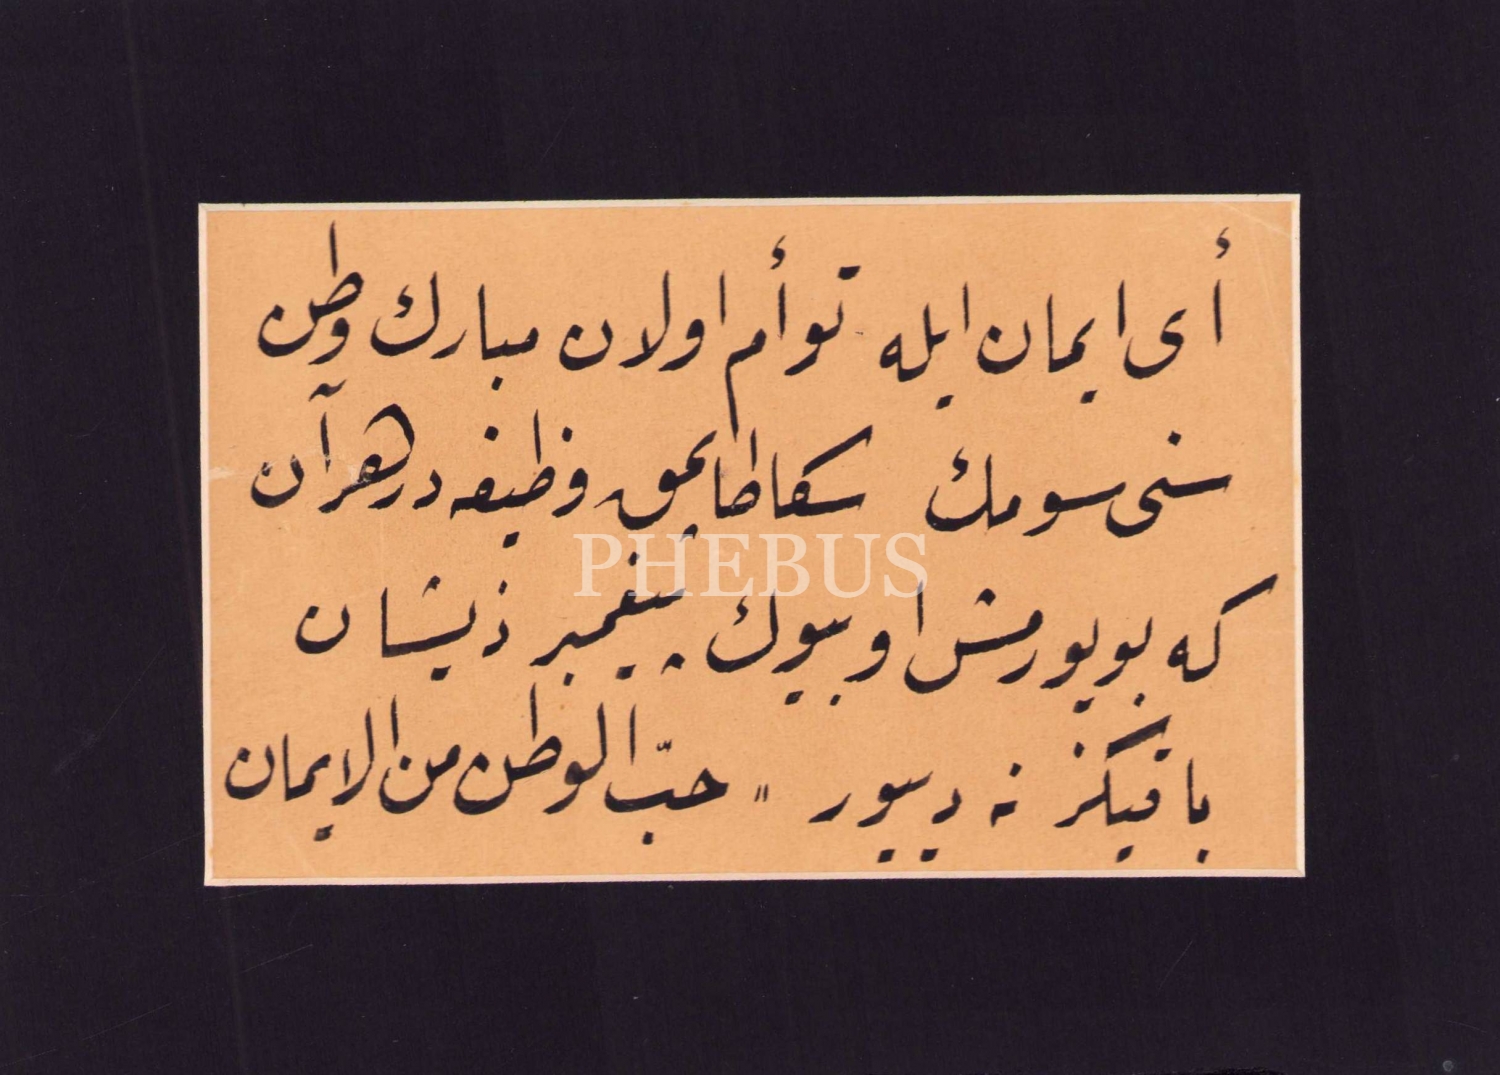 أی ایمان ایله توأم اولان مبارك وطن
سنی سومك سكا طاپمق وظیفه در هر آن
PHEBUS
كه بویورمش او بیوك پیغمبر ذیشان
باقیكز نه دییور " حبّ الوطن من الایمان